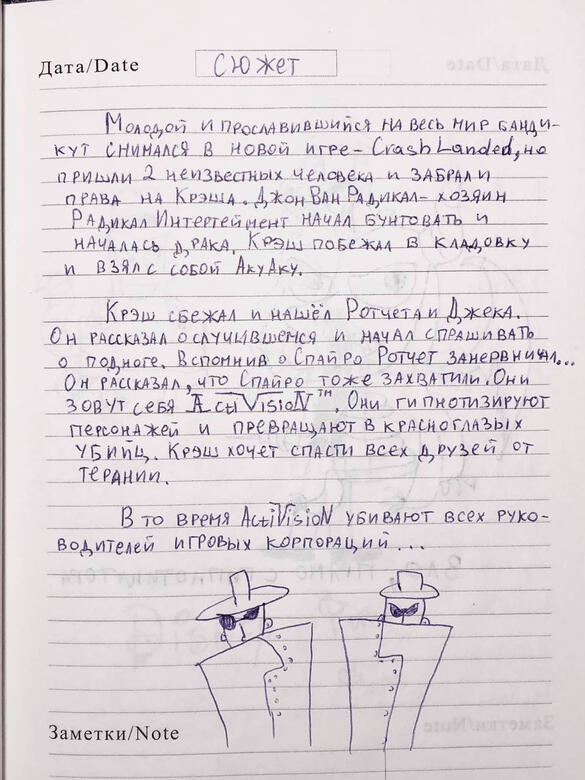 Дата/Date СЮЖЕТ
Молодой и прославившийся на весь мир банди-
кут снимался в новой игре - Crash Landed, но
пришли 2 неизвестных человека и забрали
права на Крэша. Джон Ван Радикал - хозяин
Радикал Интертеймент начал бунтовать и
началась драка. Крэш побежал в кладовку
и взял с собой АкуАку.
Крэш сбежал и нашёл Ротчета и Джека.
Он рассказал о случившемся и начал спрашивать
о подмоге. Вспомнив о Спайро Ротчет занервничал...
Он рассказал, что Спайро тоже захватили. Они
зовут себя ActiVisioN™. Они гипнотизируют
персонажей и превращают в красноглазых
убийц. Крэш хочет спасти всех друзей от
терании.
В то время ActiVisioN убивают всех руко-
водителей игровых корпораций...
Заметки/Note